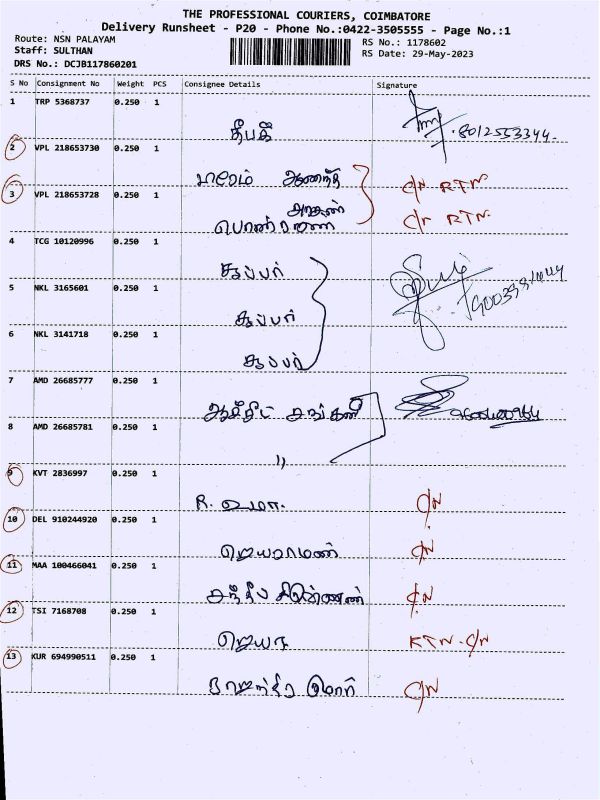 THE PROFESSIONAL COURIERS, COIMBATORE
Delivery Runsheet - P20 - Phone No.:0422-3505555 - Page No.:1
Route: NSN PALAYAM
RS No.: 1178602
Staff: SULTHAN
RS Date: 29-May-2023
DRS No.: DCJB117860201
S No Consignment No Weight PCS Consignee Details Signature
1 TRP 5368737 0.250 1
தீபக் 8012553344
2 VPL 218653730 0.250 1
ஆனந்த் C/N RTN
3 VPL 218653728 0.250 1
C/N RTN
4 TCG 10120996 0.250 1
சூப்பர்
5 NKL 3165601 0.250 1
சூப்பர்
6 NKL 3141718 0.250 1
சூப்பர்
7 AMD 26685777 0.250 1
8 AMD 26685781 0.250 1
"
9 KVT 2836997 0.250 1
R. உமா. C/N
10 DEL 910244920 0.250 1
ஜெயராமன் C/N
11 MAA 100466041 0.250 1
C/N
12 TSI 7168708 0.250 1
RTN C/N
13 KUR 694990511 0.250 1
C/N